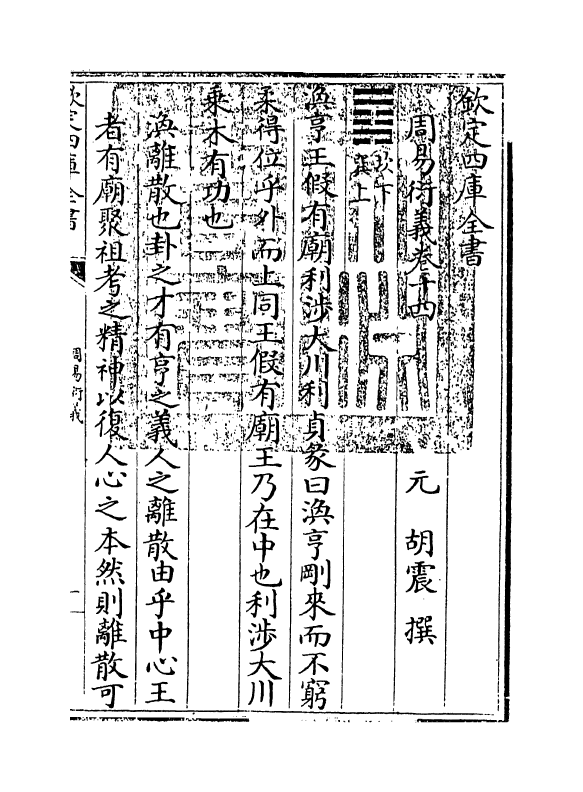 欽定四庫全書
周易衍義卷十四
元　胡震　撰
坎下
巽上
渙亨王假有廟利涉大川利貞彖曰渙亨剛來而不窮
柔得位乎外而上同王假有廟王乃在中也利涉大川
乘木有功也
渙離散也卦之才有亨之義人之離散由乎中心王
者有廟聚祖考之精神以復人心之本然則離散可
欽定四庫全書
周易衍義
一